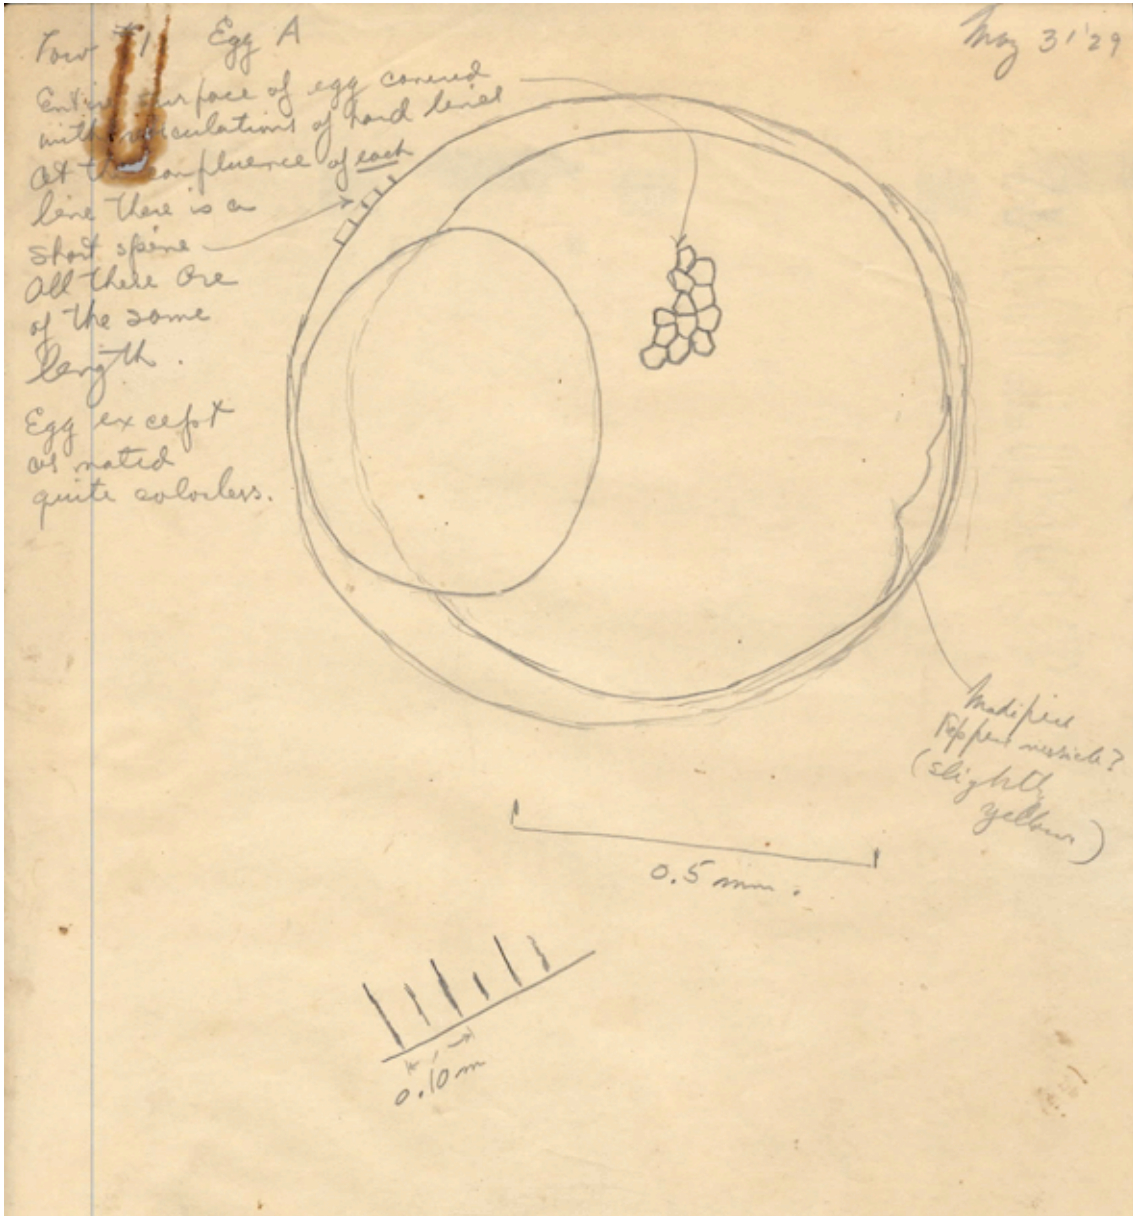 Tow #1 Egg A
May 31 '29
Entire surface of egg covered
with reticulations of hard lines
At the confluence of each
line there is a
short spine
All these are
of the same
length.
Egg except
as noted
quite colorless.
Modified
vesicle?
(slightly
yellow)
0.5 mm.
0.10 m